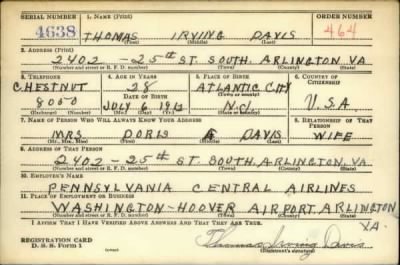 SERIAL NUMBER 1. NAME (Print) ORDER NUMBER
4638 THOMAS IRVING DAVIS 464
(First) (Middle) (Last)
2. ADDRESS (Print)
2402 - 25th ST. SOUTH. ARLINGTON, VA
(Number and street or R. F. D. number) (Town) (County) (State)
3. TELEPHONE 4. AGE IN YEARS 5. PLACE OF BIRTH 6. COUNTRY OF CITIZENSHIP
CHESTNUT 28 ATLANTIC CITY
DATE OF BIRTH (Town or county)
8050 JULY 6 1912 N.J. U.S.A
(Exchange) (Number) (Mo.) (Day) (Yr.) (State or country)
7. NAME OF PERSON WHO WILL ALWAYS KNOW YOUR ADDRESS 8. RELATIONSHIP OF THAT PERSON
MRS DORIS DAVIS WIFE
(Mr., Mrs., Miss) (First) (Middle) (Last)
9. ADDRESS OF THAT PERSON
2402 - 25th ST. SOUTH. ARLINGTON, VA.
(Number and street or R. F. D. number) (Town) (County) (State)
10. EMPLOYER'S NAME
PENNSYLVANIA CENTRAL AIRLINES
11. PLACE OF EMPLOYMENT OR BUSINESS
WASHINGTON-HOOVER AIRPORT. ARLINGTON
(Number and street or R. F. D. number) (Town) (County) (State) VA.
I AFFIRM THAT I HAVE VERIFIED ABOVE ANSWERS AND THAT THEY ARE TRUE.
REGISTRATION CARD
D. S. S. Form 1 Thomas Irving Davis
(Registrant's signature)